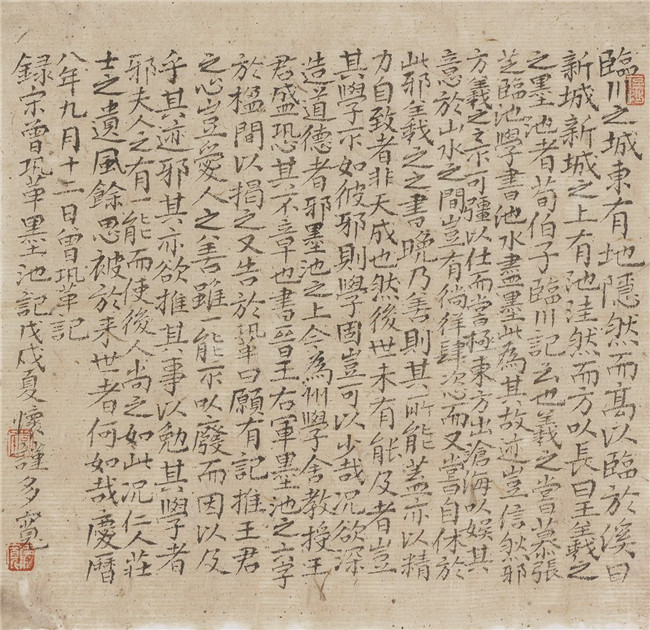 臨川之城東有地隱然而高以臨於溪曰
新城新城之上有池洼然而方以長曰王羲之
之墨池者荀伯子臨川記云也羲之嘗慕張
芝臨池學書池水盡墨此為其故迹豈信然邪
方羲之之不可彊以仕而嘗極東方出滄海以娛其
意於山水之間豈有徜徉肆恣而又嘗自休於
此邪羲之之書晚乃善則其所能蓋亦以精
力自致者非天成也然後世未有能及者豈
其學不如彼邪則學固豈可以少哉況欲深
造道德者邪墨池之上今為州學舍教授王
君盛恐其不章也書晉王右軍墨池之六字
於楹間以揭之又告於鞏曰願有記推王君
之心豈愛人之善雖一能不以廢而因以及
乎其迹邪其亦欲推其事以勉其學者
邪夫人之有一能而使後人尚之如此況仁人莊
士之遺風餘思被於来世者何如哉慶曆
八年九月十二日曾鞏記
録宋曾鞏墨池記戊戌夏懷謹